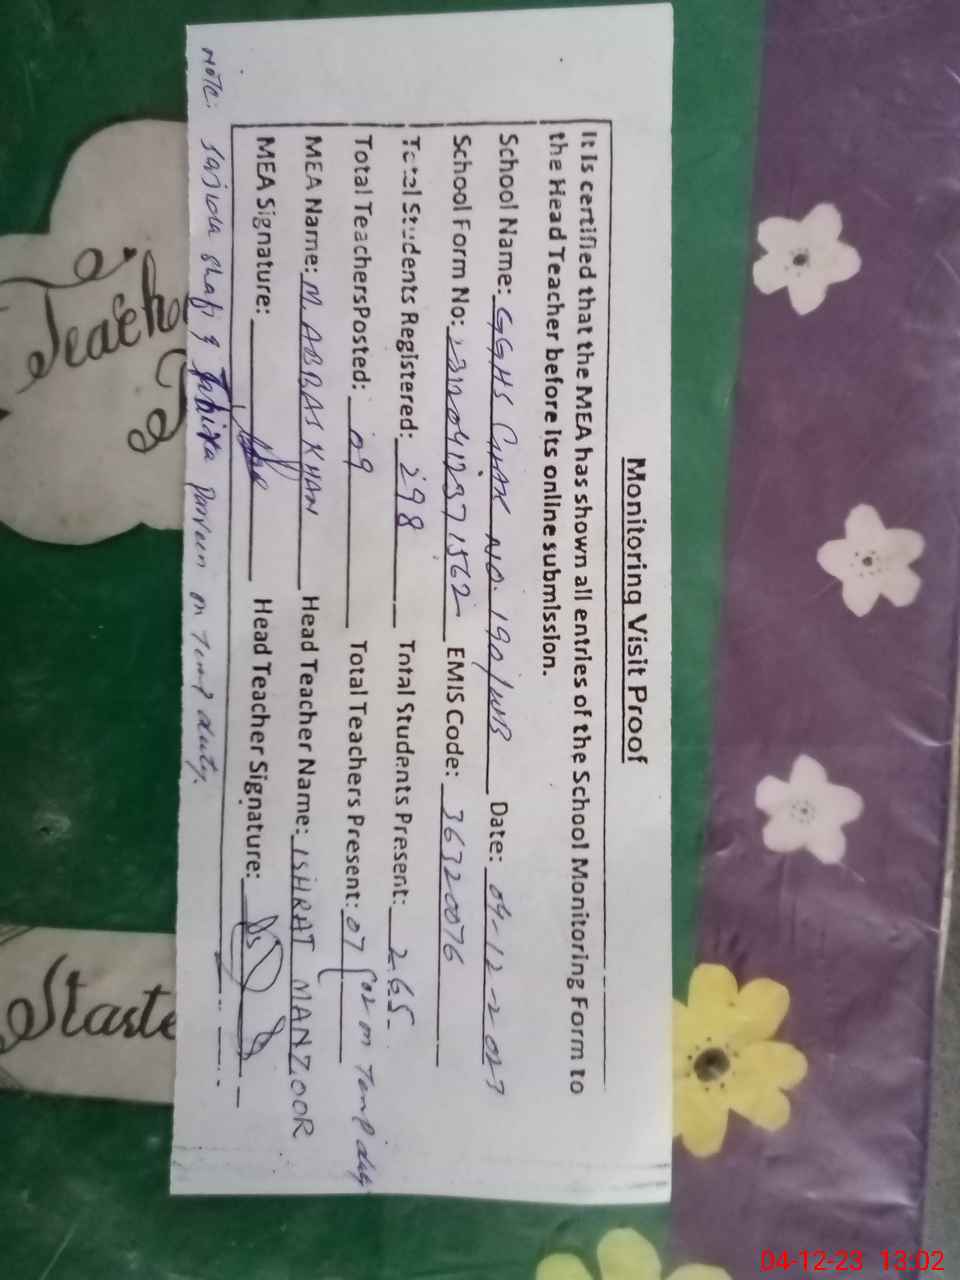 Monitoring Visit Proof
It is certified that the MEA has shown all entries of the School Monitoring Form to
the Head Teacher before its online submission.
School Name: GGHS Chak No. 190/WB Date: 04-12-2023
School Form No: EMIS Code: 36320076
Total Students Registered: 298 Total Students Present: 265
Total TeachersPosted: 09 Total Teachers Present: 07 (02 on Temp duty
MEA Name: M. ABBAS KHAN Head Teacher Name: ISHRAT MANZOOR
MEA Signature: Head Teacher Signature:
NOTE: Sajida Shafi & Parveen on Temp duty.
Teache
Starte
04-12-23 13:02